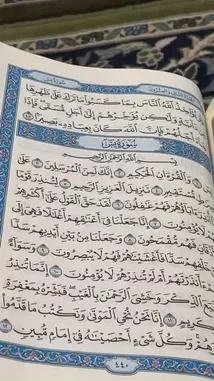 سُورَةُ يسٓ
يُؤَاخِذُ ٱللَّهُ ٱلنَّاسَ بِمَا كَسَبُوا۟ مَا تَرَكَ عَلَىٰ ظَهْرِهَا
دَآبَّةٍ وَلَٰكِن يُؤَخِّرُهُمْ إِلَىٰٓ أَجَلٍ مُّسَمًّى فَإِذَا
أَجَلُهُمْ فَإِنَّ ٱللَّهَ كَانَ بِعِبَادِهِۦ بَصِيرًۢا ٤٥
سُورَةُ يسٓ
بِسْمِ ٱللَّهِ ٱلرَّحْمَٰنِ ٱلرَّحِيمِ
وَٱلْقُرْءَانِ ٱلْحَكِيمِ ٢ إِنَّكَ لَمِنَ ٱلْمُرْسَلِينَ ٣ عَلَىٰ
مُّسْتَقِيمٍ ٤ تَنزِيلَ ٱلْعَزِيزِ ٱلرَّحِيمِ ٥ لِتُنذِرَ قَوْمًا
ءَابَآؤُهُمْ فَهُمْ غَٰفِلُونَ ٦ لَقَدْ حَقَّ ٱلْقَوْلُ عَلَىٰٓ أَكْثَرِهِمْ
لَا يُؤْمِنُونَ ٧ إِنَّا جَعَلْنَا فِىٓ أَعْنَٰقِهِمْ أَغْلَٰلًا فَهِىَ إِلَى
فَهُم مُّقْمَحُونَ ٨ وَجَعَلْنَا مِنۢ بَيْنِ أَيْدِيهِمْ سَدًّا
خَلْفِهِمْ سَدًّا فَأَغْشَيْنَٰهُمْ فَهُمْ لَا يُبْصِرُونَ ٩ وَسَوَآءٌ
ءَأَنذَرْتَهُمْ أَمْ لَمْ تُنذِرْهُمْ لَا يُؤْمِنُونَ ١٠ إِنَّمَا تُنذِرُ
ٱلذِّكْرَ وَخَشِىَ ٱلرَّحْمَٰنَ بِٱلْغَيْبِ فَبَشِّرْهُ بِمَغْفِرَةٍ
كَرِيمٍ ١١ إِنَّا نَحْنُ نُحْىِ ٱلْمَوْتَىٰ وَنَكْتُبُ مَا قَدَّمُوا۟
وَكُلَّ شَىْءٍ أَحْصَيْنَٰهُ فِىٓ إِمَامٍ مُّبِينٍ ١٢
٤٤٠